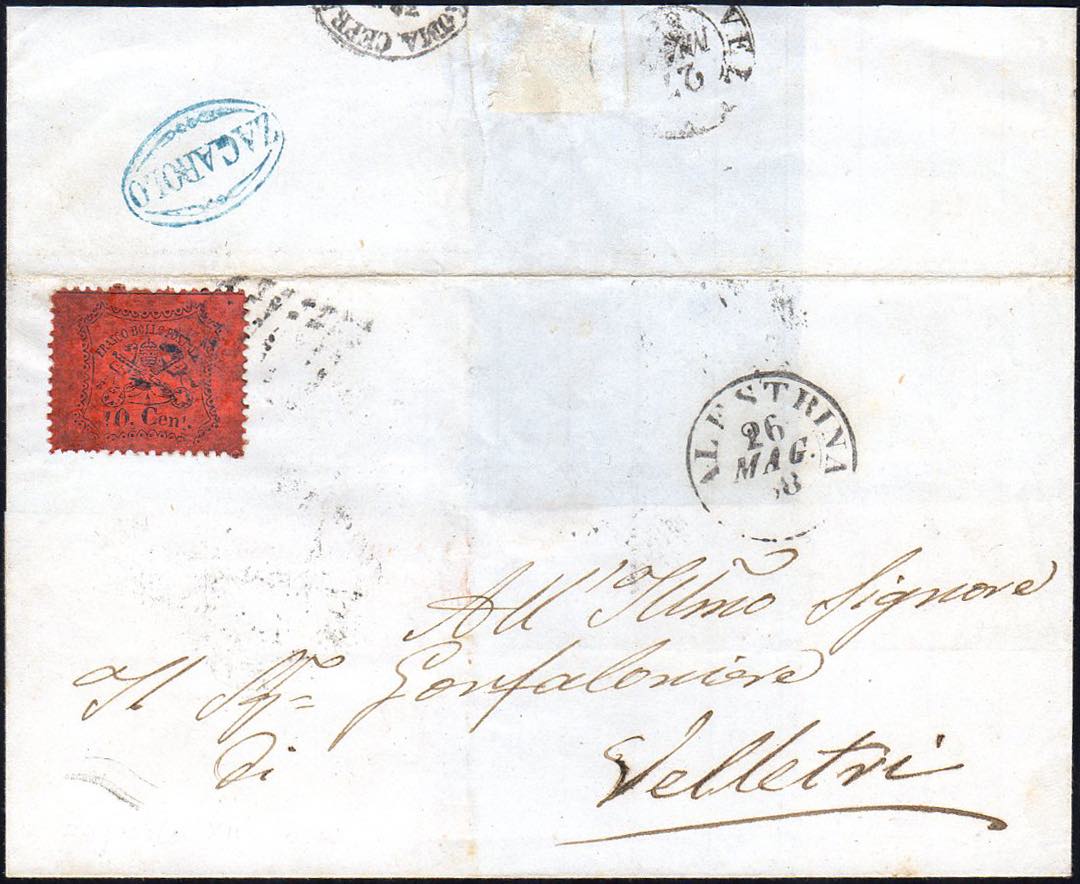 OMA CEPR
VEL
2
ZAGAROLO
FRANCO BOLLO POSTALE
10. Cent.
ALESTRINA
26
MAG.
68
All'Illmo Signore
Il Sigr Gonfaloniere
Di
Velletri